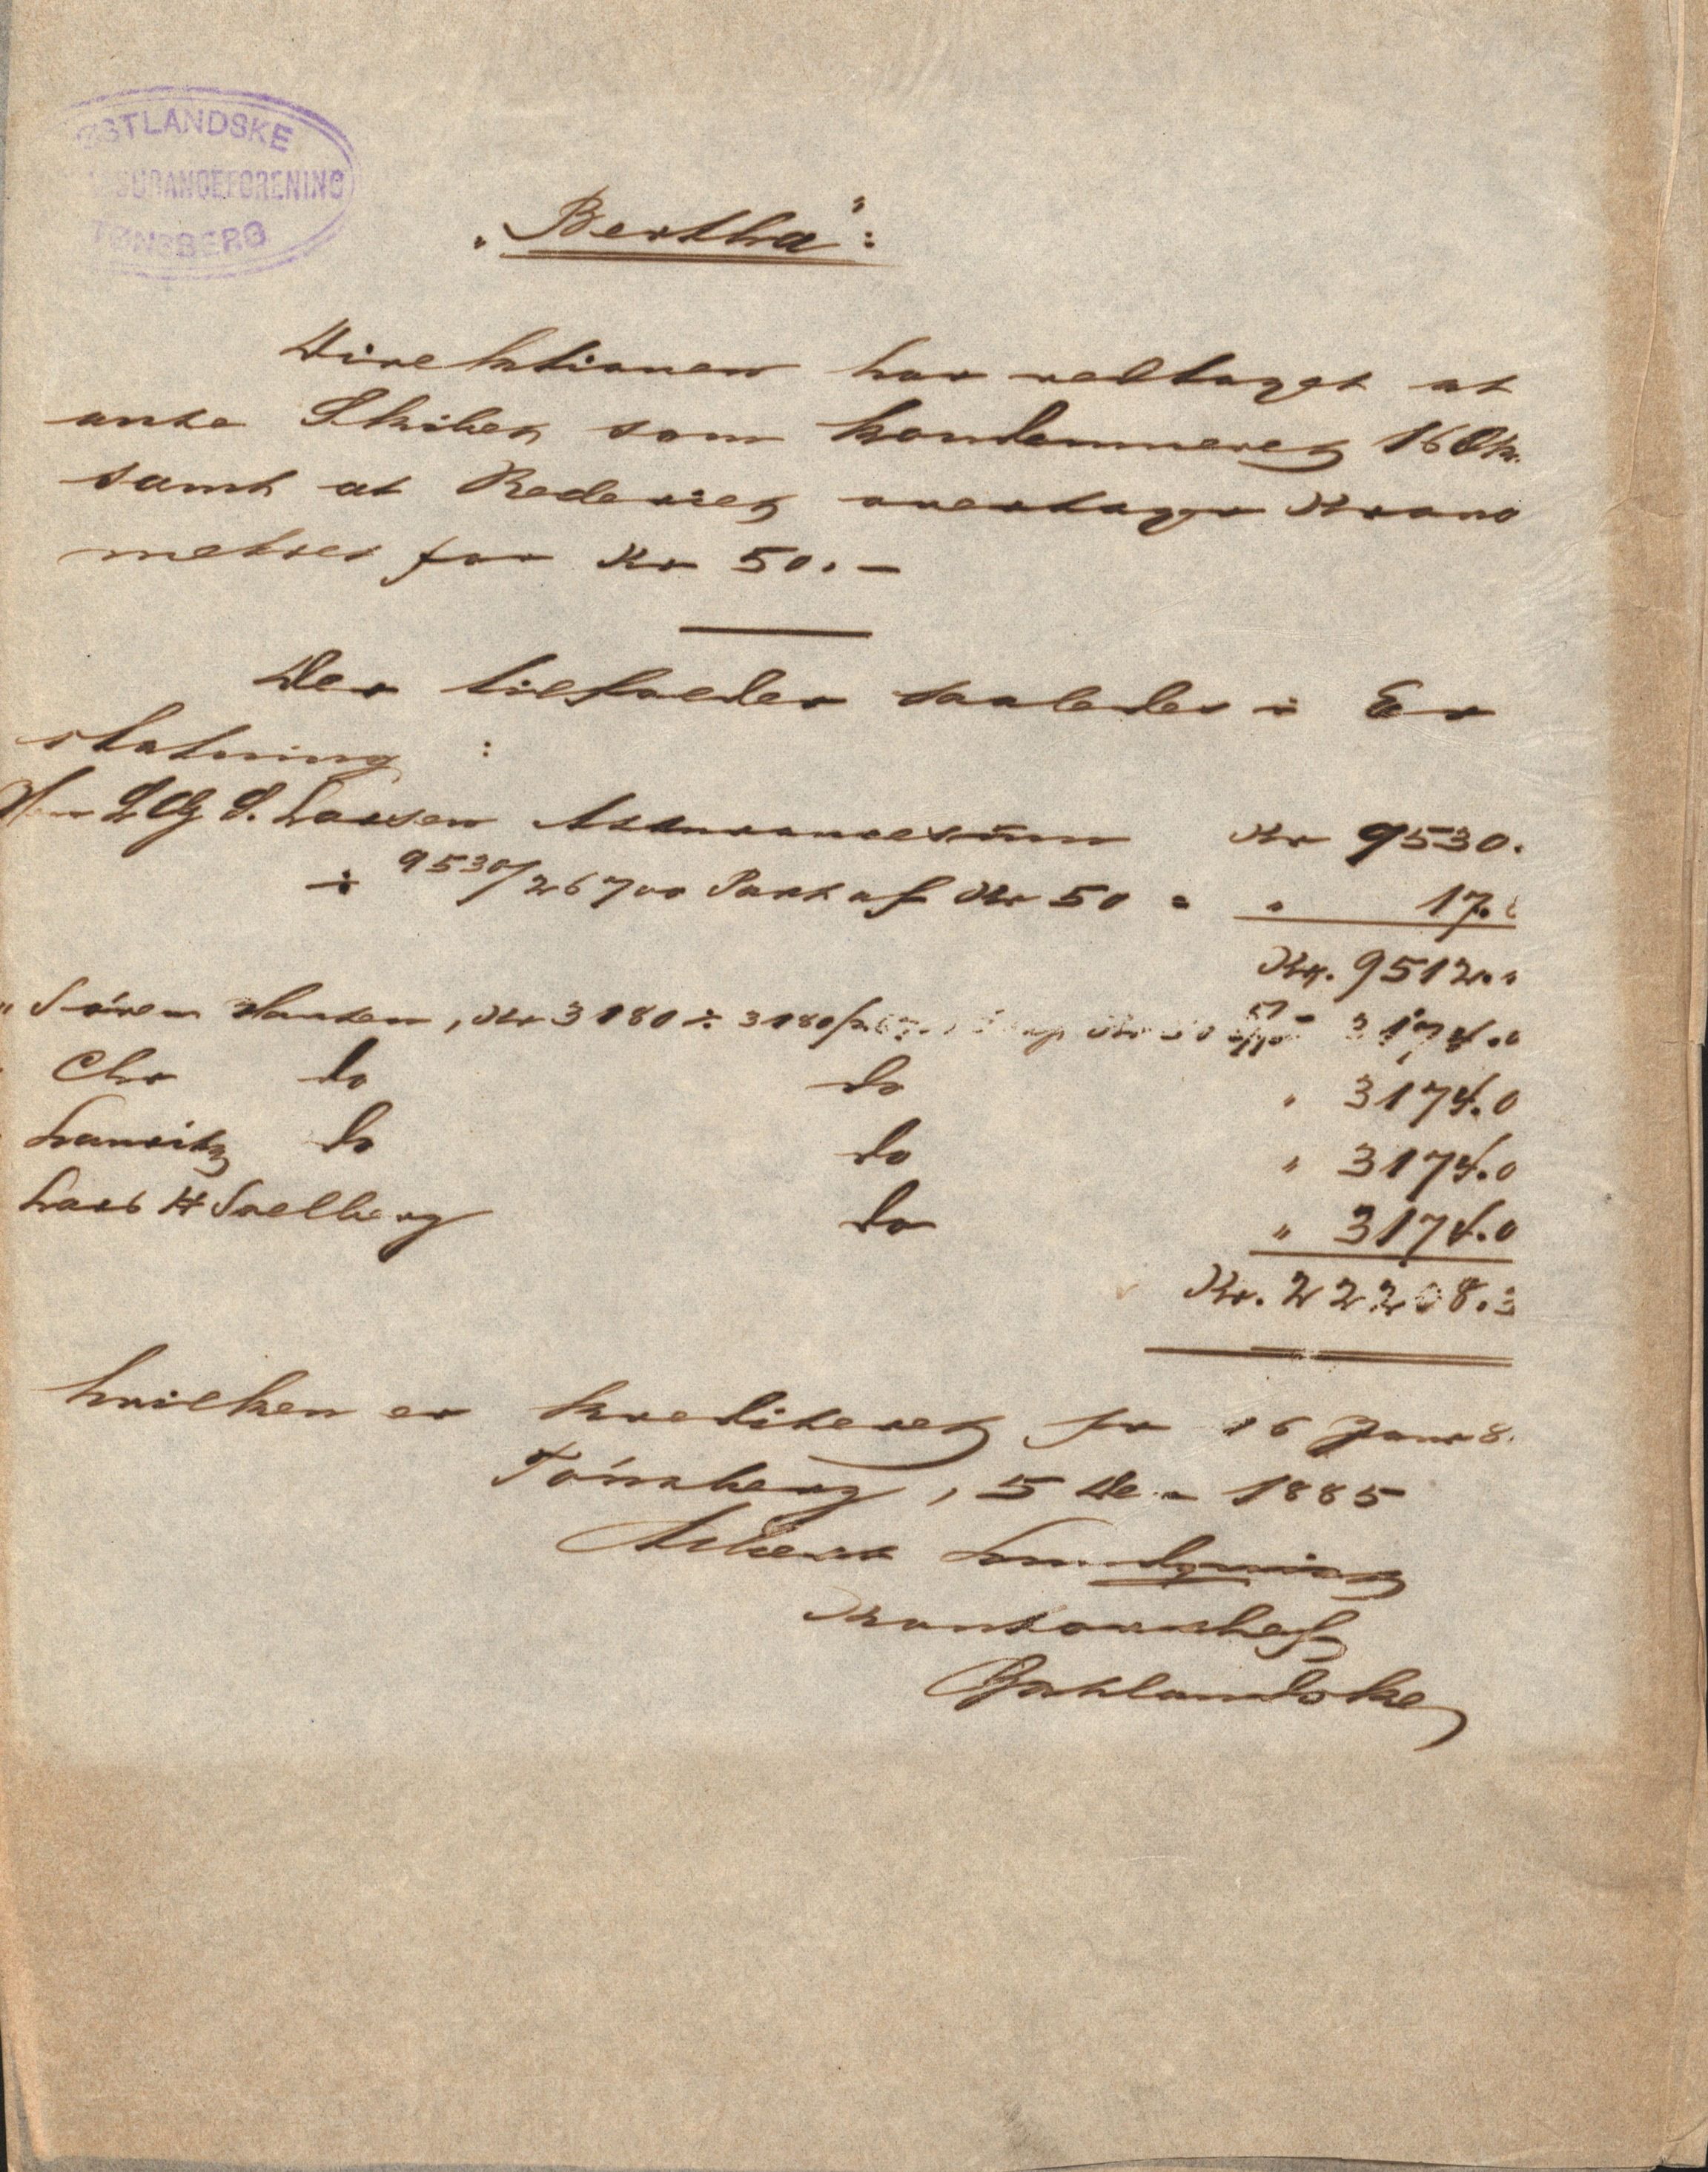 ØSTLANDSKE
ASSURANCEFORENING
TØNSBERG
„Bertha":
Direktionen har vedtaget at
anse Skibet som kondemneret 16 Ok.
samt at Rederiet overtager Krono
metret for Kr 50.-
Der tilfalder saaledes i Er
statning :
Herr S. Larsen Assurancesum Kr 9530.
÷ 9530/26700 Part af Kr 50 = " 17.
Kr. 9512.
" Sören Hansen, Kr 3180 ÷ 3180/267 Kr 50 3174.0
Chr do do " 3174.0
Lauritz do do " 3174.0
Lars H Soelberg do " 3174.0
Kr. 22208.3
hvilken er krediteret pr 16 Janr 8.
Tönsberg, 5 De 1885
Albert Lundqvist
Kontorchef
Östlandske